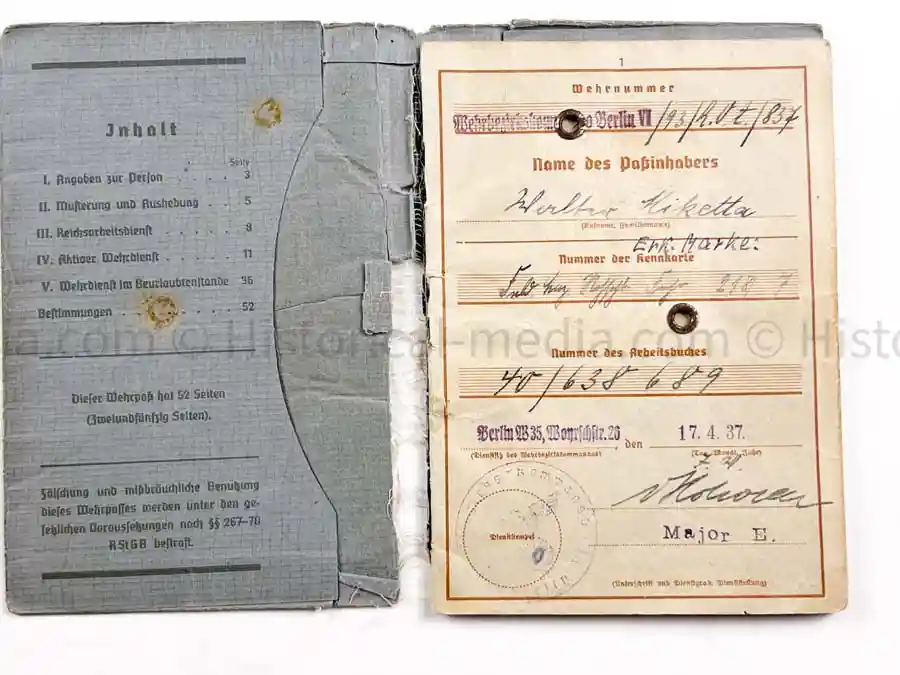 Inhalt
Seite
I. Angaben zur Person . . . . . 3
II. Musterung und Aushebung . . . 5
III. Reichsarbeitsdienst . . . . . . 8
IV. Aktiver Wehrdienst . . . . . . 11
V. Wehrdienst im Beurlaubtenstande 36
Bestimmungen . . . . . . . . 52
Dieser Wehrpaß hat 52 Seiten
(Zweiundfünfzig Seiten).
Fälschung und mißbräuchliche Benutzung
dieses Wehrpasses werden unter den ge-
setzlichen Voraussetzungen nach §§ 267-70
RStGB bestraft.
1
Wehrnummer
Berlin VI /93/
Name des Paßinhabers
Walter Miketta
(Rufname, Familienname)
Erk. Marke:
Nummer der Kennkarte
218 7
Nummer des Arbeitsbuches
40/638 689
Berlin W35, Woyrschstr. 26, den 17. 4. 37.
(Dienstsitz des Wehrbezirkskommandos) (Tag, Monat, Jahr)
Major E.
Dienststempel
(Unterschrift und Dienstgrad, Dienststellung)
© Historical-media.com © Histo